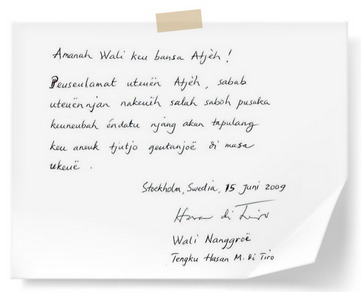 Amanah Wali keu bansa Atjèh !
Peuseulamat uteuën Atjèh, sabab
uteuënnjan nakeuih salah saboh pusaka
keuneubah éndatu njang akan tapulang
keu aneuk tjutjo geutanjoë di masa
ukeuë .
Stockholm, Swedia, 15 Juni 2009
Hasan di Tiro
Wali Nanggroë
Tengku Hasan M. Di Tiro